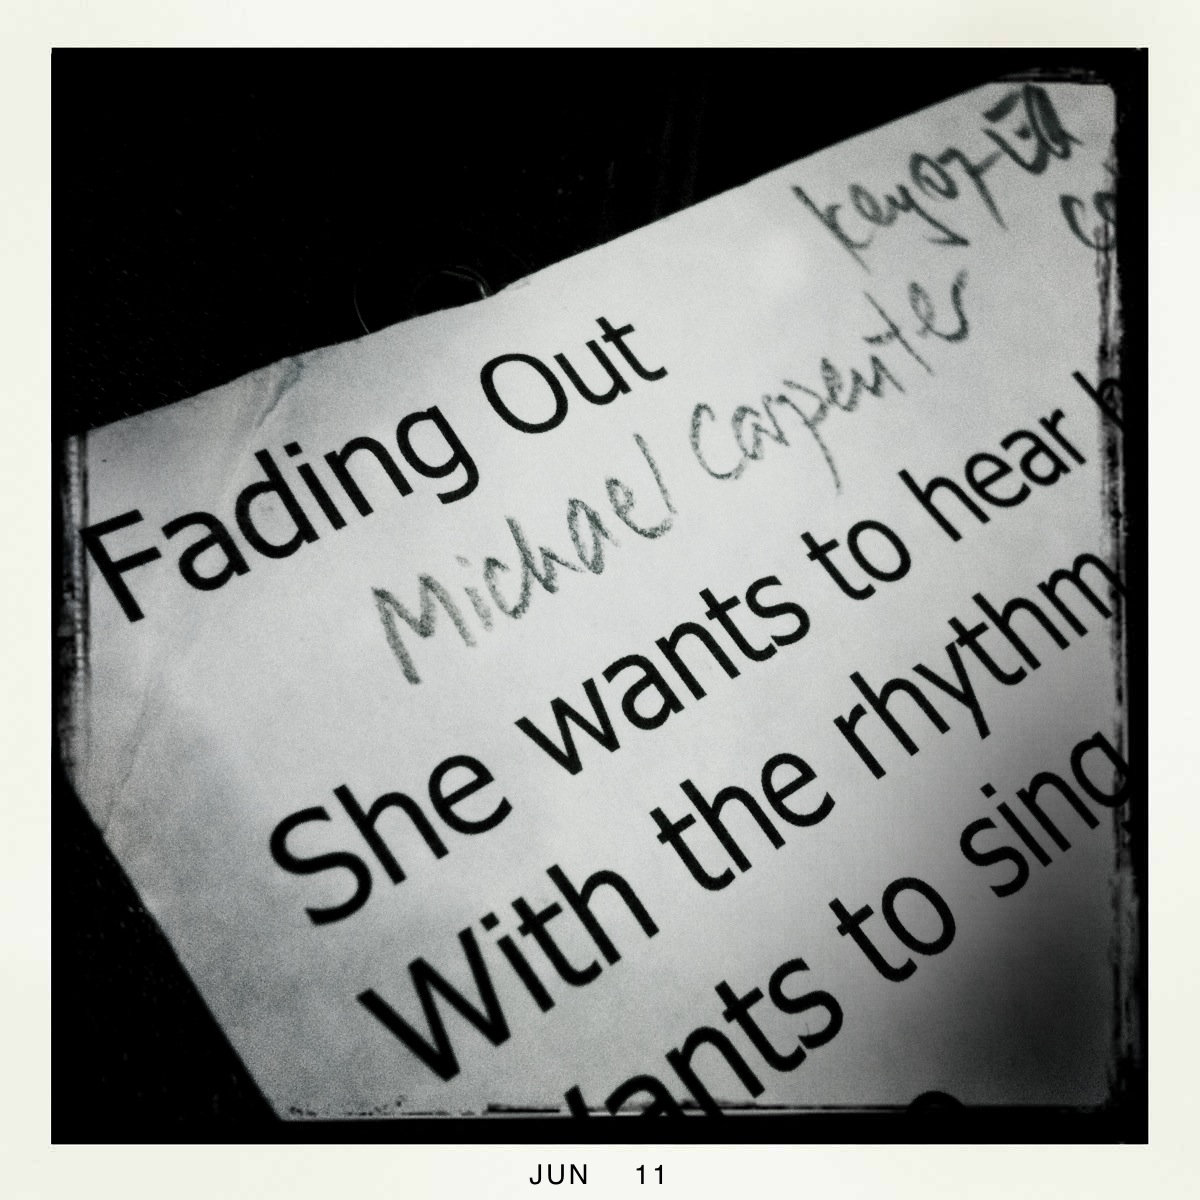 key of
Fading Out
Michael Carpenter
She wants to hear
With the rhythm
wants to sing
JUN 11